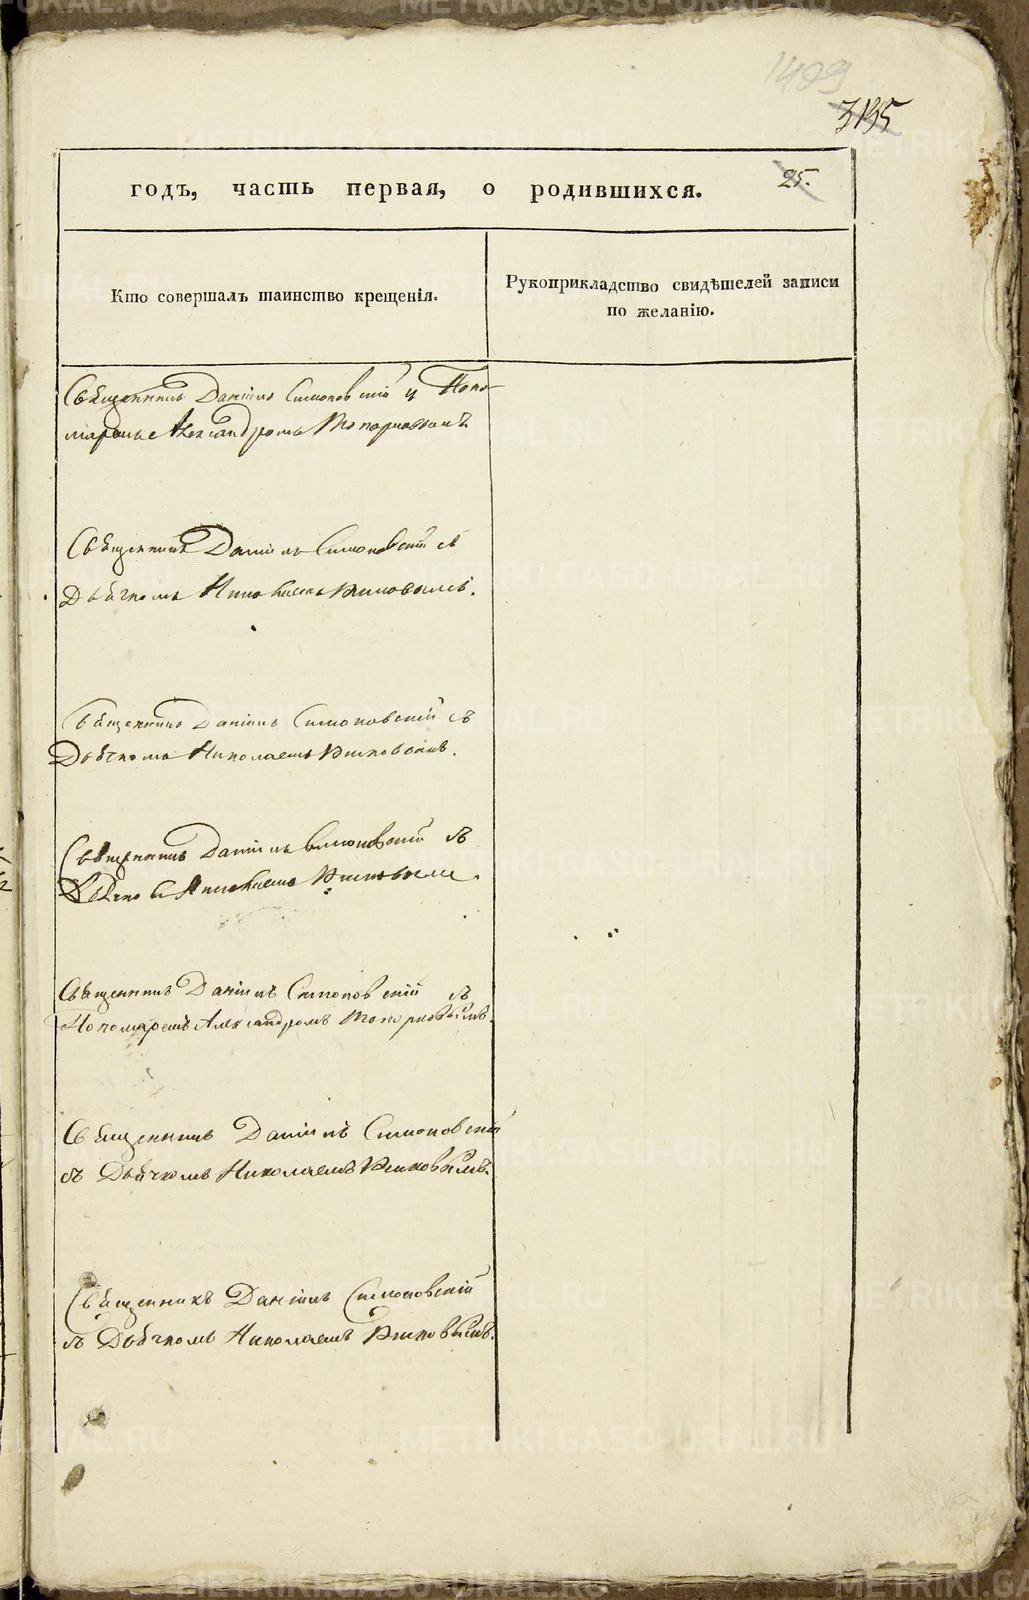 1489
3135
25.
годъ, часть первая, о родившихся.
Кто совершалъ таинство крещенія.
Рукоприкладство свидѣтелей записи
по желанію.
Священникъ Даніилъ Симоновскій и Поно-
маремъ Александромъ Топорковымъ
Священникъ Даніилъ Симоновскій съ
Дьячкомъ Николаемъ
Священникъ Даніилъ Симоновскій съ
Дьячкомъ Николаемъ
Священникъ Даніилъ Симоновскій съ
Николаемъ
Священникъ Даніилъ Симоновскій съ
Пономаремъ Александромъ Топорковымъ.
Священникъ Даніилъ Симоновскій
съ Дьячкомъ Николаемъ
Священникъ Даніилъ Симоновскій
съ Дьячкомъ Николаемъ
METRIKI.GASO-URAL.RU